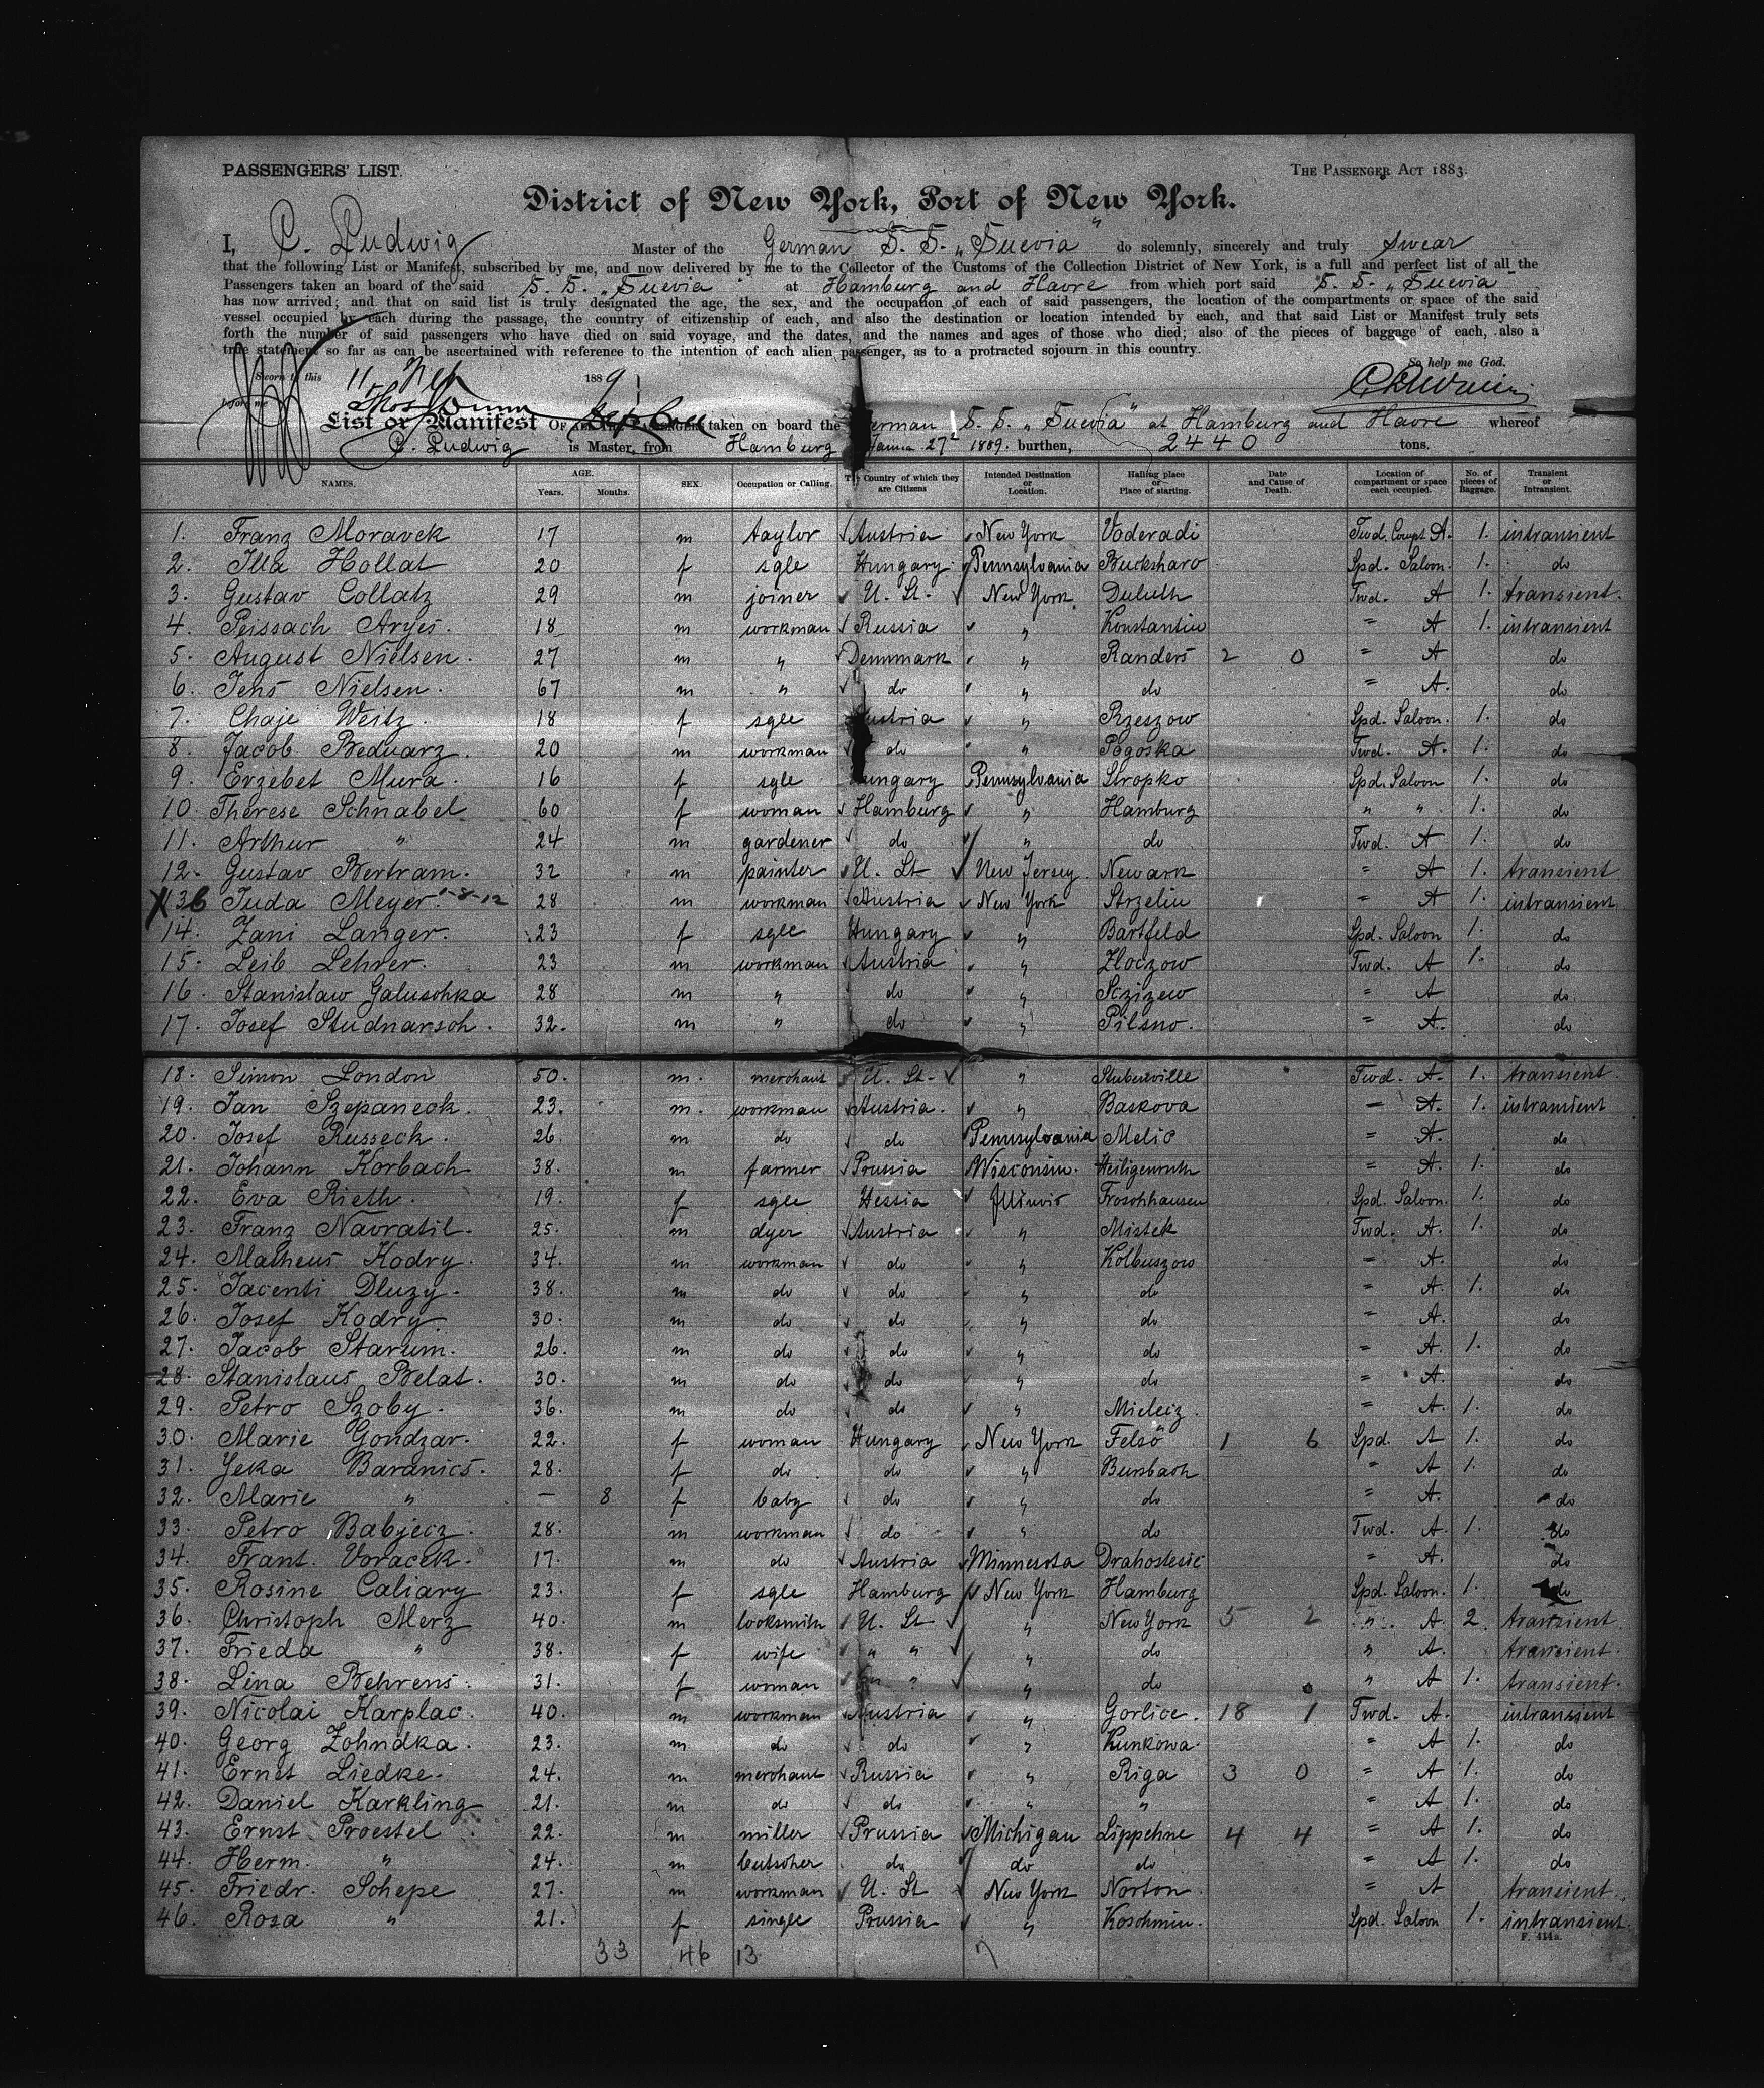 PASSENGERS' LIST.
THE PASSENGER ACT 1883.
District of New York, Port of New York.
I, C. Ludwig Master of the German S. S. „Suevia" do solemnly, sincerely and truly swear
that the following List or Manifest, subscribed by me, and now delivered by me to the Collector of the Customs of the Collection District of New York, is a full and perfect list of all the
Passengers taken an board of the said S. S. „Suevia" at Hamburg and Havre from which port said S. S. „Suevia"
has now arrived; and that on said list is truly designated the age, the sex, and the occupation of each of said passengers, the location of the compartments or space of the said
vessel occupied by each during the passage, the country of citizenship of each, and also the destination or location intended by each, and that said List or Manifest truly sets
forth the number of said passengers who have died on said voyage, and the dates, and the names and ages of those who died; also of the pieces of baggage of each, also a
true statement so far as can be ascertained with reference to the intention of each alien passenger, as to a protracted sojourn in this country.
So help me God.
Sworn to this 11 1889
before me
List or Manifest OF ALL THE PASSENGERS taken on board the German S. S. „Suevia" at Hamburg and Havre whereof
C. Ludwig is Master, from Hamburg 27 1889. burthen, 2440 tons.
NAMES. AGE. Years. Months. SEX Occupation or Calling. The Country of which they are Citizens Intended Destination or Location. Hailing place or Place of starting. Date and Cause of Death. Location of compartment or space each occupied. No. of pieces of Baggage. Transient or Intransient.
1. Franz Moravek 17 m taylor Austria New York Voderadi Twd. Compt A. 1. intransient
2. Illa Hollat 20 f sgle Hungary Pennsylvania Bucksharo Spd. Saloon. 1. do
3. Gustav Collatz 29 m joiner U. St. New York Duluth Twd. A 1. transient.
4. Peissach Aryes. 18 m workman Russia „ Konstantin = A 1. intransient
5. August Nielsen. 27 m „ Dennmark „ Randers 2 0 = A do
6. Jens Nielsen. 67 m „ do „ do = A. do
7. Chaje Weitz. 18 f sgle Austria „ Rzeszow Spd. Saloon. 1. do
8. Jacob Beduarz. 20 m workman do „ Pogoska Twd. A. 1. do
9. Erzebet Mura. 16 f sgle Hungary Pennsylvania Stropko Spd. Saloon 1. do
10. Therese Schnabel 60 f woman Hamburg „ Hamburg „ „ 1. do
11. Arthur „ 24 m gardener do „ do Twd. A 1. do
12. Gustav Bertram. 32 m painter U. St New Jersey. Newark = A 1. transient
13 Juda Meyer. 28 m workman Austria New York Strzeliu = A 1. intransient
14. Zani Langer. 23 f sgle Hungary „ Bartfeld Spd. Saloon 1. do
15. Leib Lehrer. 23 m workman Austria „ Zloczow Twd. A 1. do
16. Stanislaw Galuschka 28 m „ do „ Sczizew = A do
17. Josef Studnarsch. 32. m „ do „ Pilsno. = A. do
18. Simon London 50. m. merchant U. St. „ Stubenville Twd. A. 1. transient.
19. Jan Szepaneck. 23. m. workman Austria. „ Baskova = A. 1. intransient
20. Josef Russeck. 26. m do do Pennsylvania Melic = A. do
21. Johann Korbach 38. m farmer Prussia Wisconsin. Heiligenroth = A. 1. do
22. Eva Rieth. 19. f sgle Hessia Illinois Froschhausen Spd. Saloon. 1. do
23. Franz Navratil. 25. m dyer Austria „ Mistek Twd. A. 1. do
24. Matheus Kodry. 34. m workman do „ Kolbuszow = A. do
25. Jacenti Dluzy. 38. m do do „ do = A. 1. do
26. Josef Kodry. 30. m do do „ do = A. do
27. Jacob Starum. 26. m do do „ do = A. 1. do
28. Stanislaus Belat. 30. m do do „ do = A. do
29. Petro Szoby. 36. m do do „ Mieleiz. = A. 1. do
30. Marie Gondzar. 22. f woman Hungary New York Felsö 1 6 Spd. A 1. do
31. Jeka Baranics. 28. f do do „ Bursbach " A 1. do
32. Marie „ — 8 f baby do „ do = A. do
33. Petro Babjecz. 28. m workman do „ do Twd. A. 1. do
34. Frant. Voracek. 17. m do Austria Minnesota Drahostesic = A. do
35. Rosine Caliary 23. f sgle Hamburg New York Hamburg Spd. Saloon. 1. do
36. Christoph Merz 40. m locksmith U. St „ New York 5 2 „ A. 2. transient.
37. Frieda „ 38. f wife „ „ „ do „ A. transient.
38. Lina Behrens. 31. f woman „ „ „ do „ A 1. transient.
39. Nicolai Karplac. 40. m workman Austria „ Gorlice. 18 1 Twd. A. intransient
40. Georg Zohndka. 23. m do do „ Kunkowa. = A 1. do
41. Ernst Liedke. 24. m merchant Russia „ Riga 3 0 = A 1. do
42. Daniel Karkling 21. m do do „ „ = A 1. do
43. Ernst Proestel 22. m miller Prussia Michigan Lippehne 4 4 = A 1. do
44. Herm. „ 24. m butscher do do do = A 1. do
45. Friedr. Schepe 27. m workman U. St New York Norton = A transient.
46. Rosa „ 21. f single Prussia „ Koschmin. Spd. Saloon 1. intransient.
F. 414a.
33 46 13 7